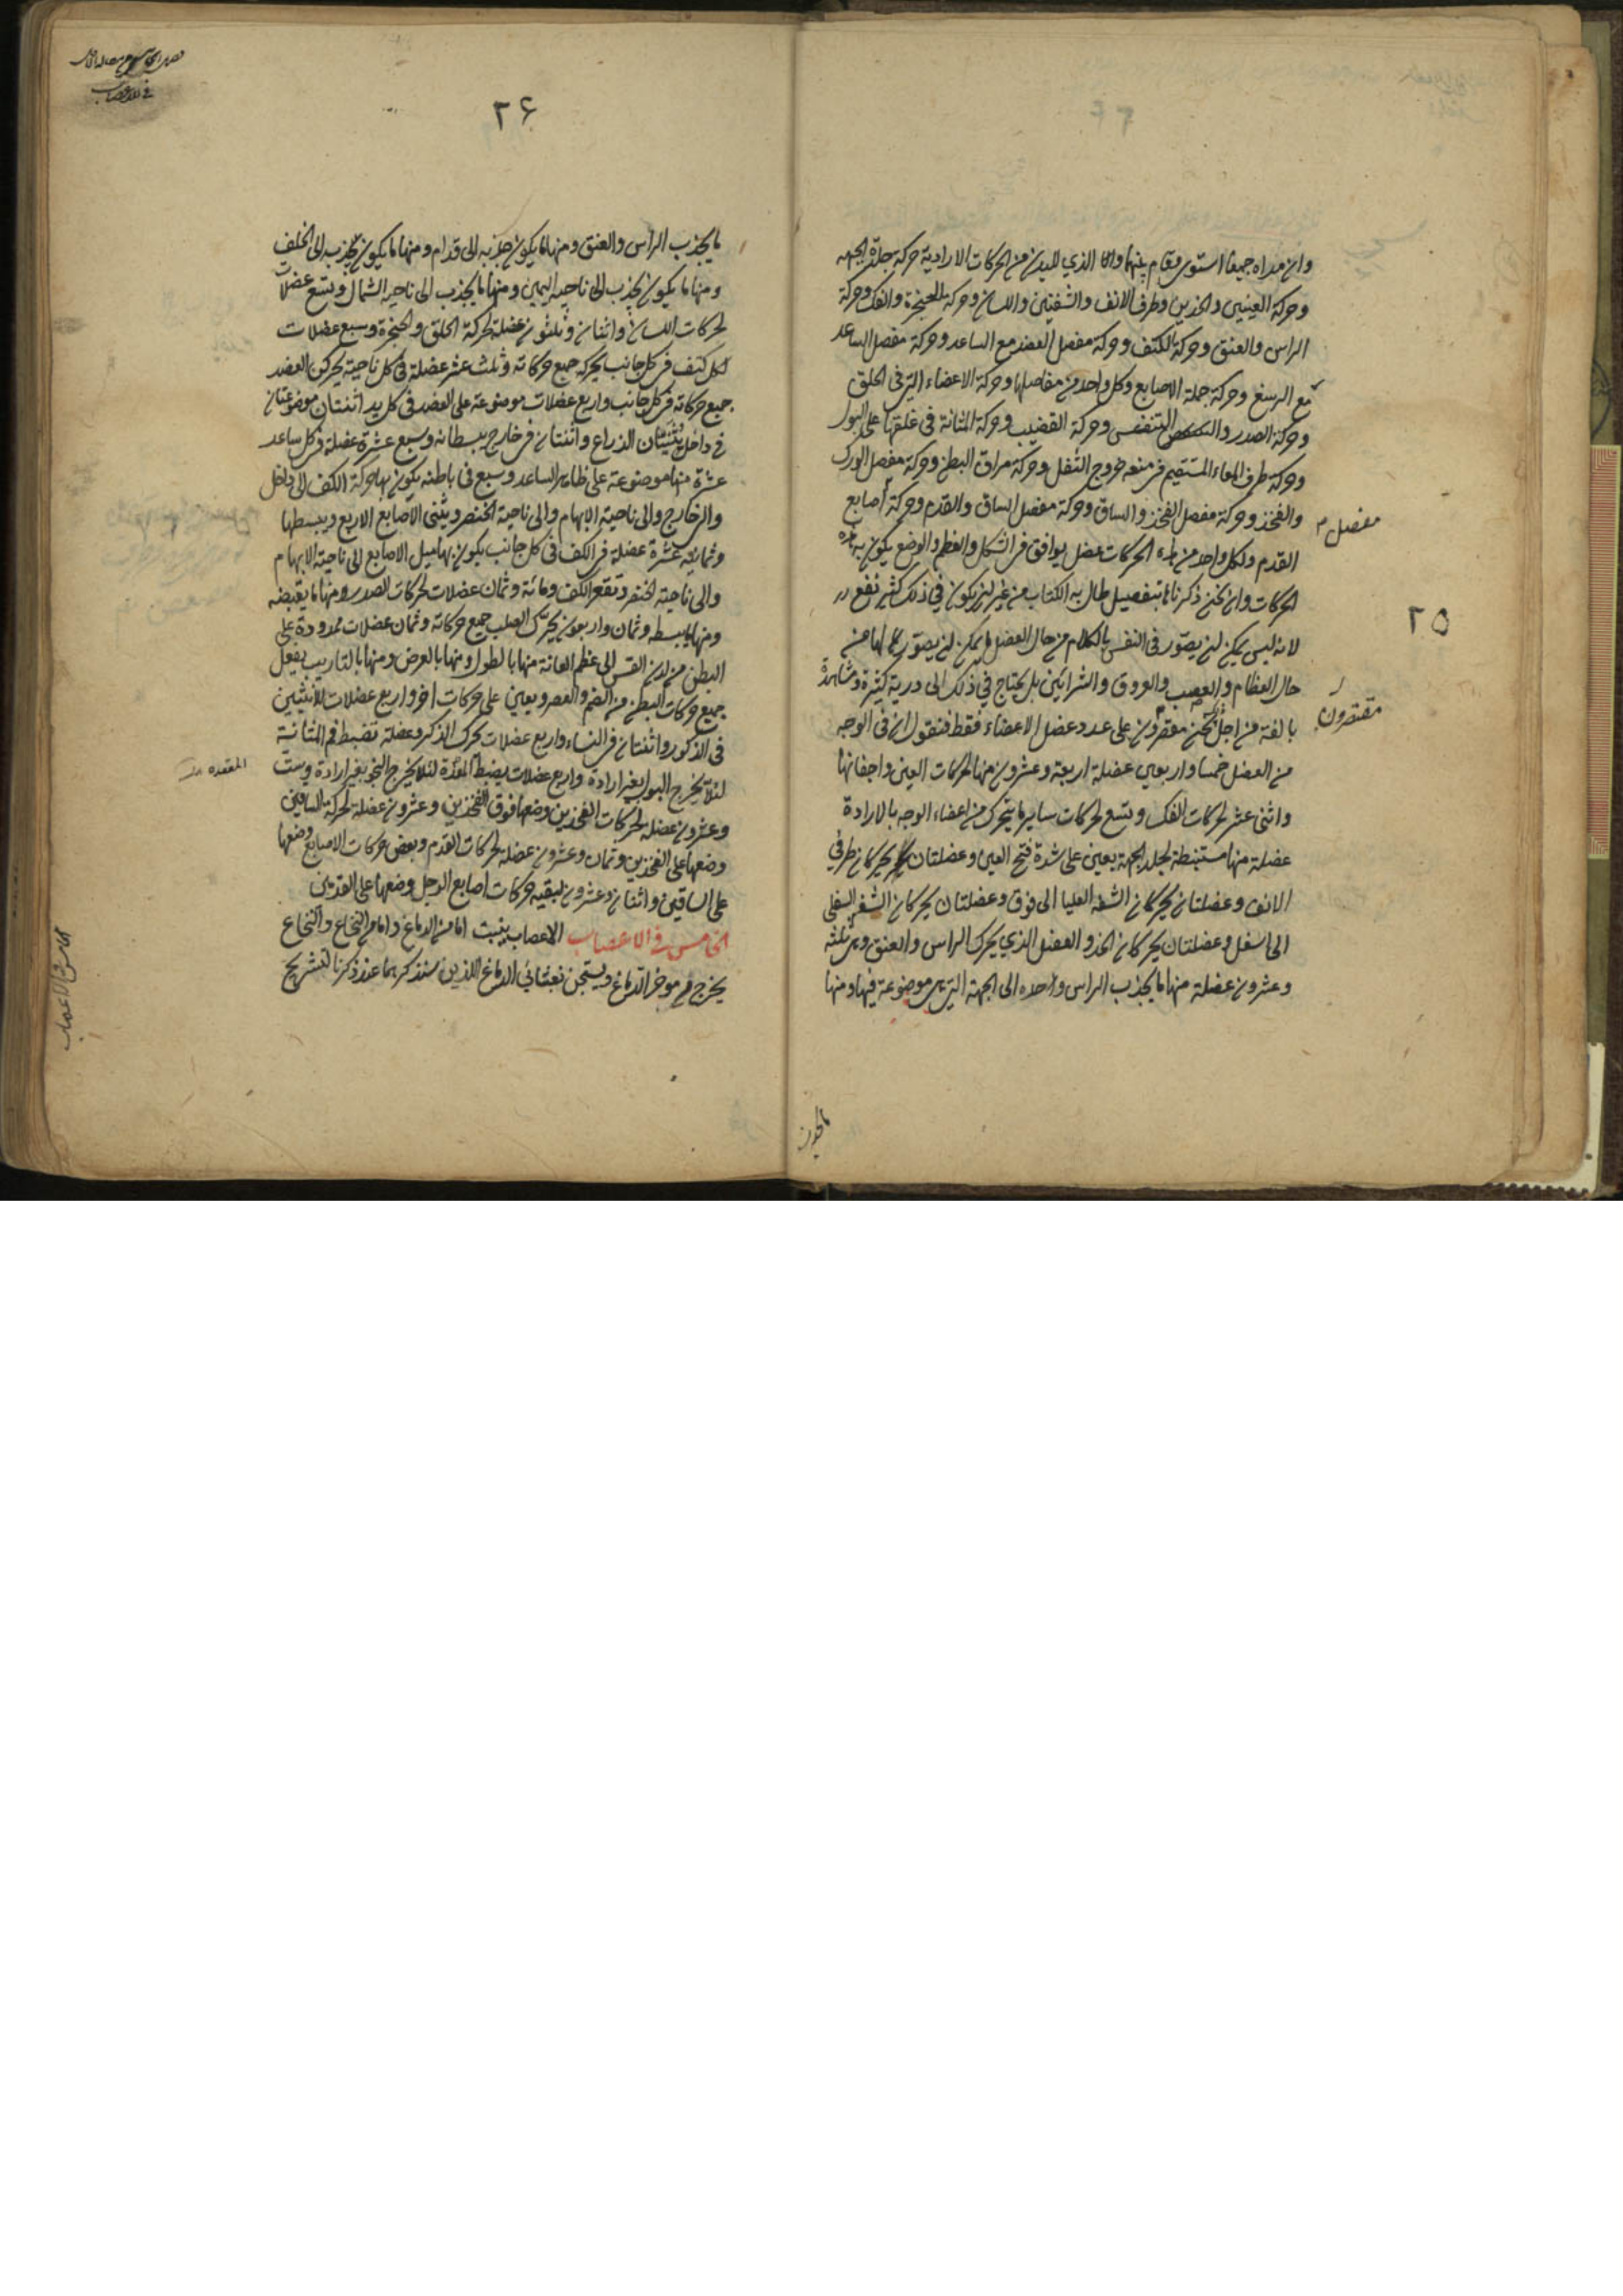 وان مداه جميعا استوى وقام بينهما واما الذي للبدن من الحركات الارادية حركة جلدة الجبهه
وحركة العينين والخدين وطرف الانف والشفتين واللسان وحركة الحنجرة والفك وحركة
الراس والعنق وحركة الكتف وحركة مفصل العضد مع الساعد وحركة مفصل الساعد
مع الرسغ وحركة جملة الاصابع وكل واحد من مفاصلها وحركة الاعضاء التي في الحلق
وحركة الصدر والتنفس وحركة القضيب وحركة المثانة في غلقها على البول
وحركة طرف المعاء المستقيم في منعه خروج الثفل وحركة مراق البطن وحركة مفصل الورك
والفخذ وحركة مفصل الفخذ والساق وحركة مفصل الساق والقدم وحركة اصابع
مفصل م
القدم ولكل واحد من هذه الحركات عضل يوافق في الشكل والعظم والوضع يكون به هذه
الحركات وان نحن ذكرناها بتفصيل طال به الكتاب من غير ان يكون في ذلك كثير نفع
٢٥
لانه ليس يمكن ان يصور في النفس بالكلام من حال العضل ما يمكن ان يصور كمالها من
حال العظام والعصب والعروق والشرايين بل يحتاج في ذلك الى دربة كثيرة ومشاهدة
بالغة من اجل نحن مقصرون على عدد عضل الاعضاء فقط فنقول ان في الوجه
مقتصرون
من العضل خمسا واربعين عضلة اربعة وعشرون منها لحركات العين واجفانها
واثنى عشر لحركات الفك وتسع لحركات ساير ما يتحرك من اعضاء الوجه بالارادة
عضلة منها مستبطنة لجلد الجبهة يعين على شدة فتح العين وعضلتان يحركان طرفي
الانف وعضلتان يحركان الشفة العليا الى فوق وعضلتان يحركان الشفة السفلى
الى اسفل وعضلتان يحركان الخد والعضل الذي يحرك الراس والعنق وهي ثلثه
وعشرون عضلة منها ما يجذب الراس واحده الى الجهة التي هي موضوعة فيها ومنها
ما يجذب
٢۶
ما يجذب الراس والعنق ومنها ما يكون جذبه الى قدام ومنها ما يكون يجذب الى الخلف
ومنها ما يكون يجذب الى ناحية اليمين ومنها ما يجذب الى ناحية الشمال وتسع عضلات
لحركات اللسان واثنان وثلثون عضلة لحركة الحلق والحنجرة وسبع عضلات
لكل كتف في كل جانب يحركه جميع حركاته وثلث عشر عضلة في كل ناحية يحركن العضد
جميع حركاته في كل جانب واربع عضلات موضوعة على العضد في كل يد اثنتان موضوعتان
في داخل يثنيان الذراع واثنتان في خارج يبسطانه وسبع عشرة عضلة في كل ساعد
عشرة منها موضوعة على ظاهر الساعد وسبع في باطنه يكون بها حركة الكف الى داخل
والى خارج والى ناحية الابهام والى ناحية الخنصر ويثنى الاصابع الاربع ويبسطها
وثمانية عشرة عضلة في الكف في كل جانب يكون بها ميل الاصابع الى ناحية الابهام
والى ناحية الخنصر وتقعر الكف ومائة وثمان عضلات لحركات الصدر ومنها ما يقبضه
ومنها ما يبسطه وثمان واربعون يحرك الصلب جميع حركاته وثمان عضلات ممدودة على
البطن من لدن القس الى عظم العانة منها بالطول ومنها بالعرض ومنها بالتاريب يفعل
جميع حركات البطن من الضم والعصر ويعين على حركات اخر واربع عضلات للانثيين
في الذكور واثنتان في النساء واربع عضلات يحرك الذكر وعضلة تضبط فم المثانة
لئلا يخرج البول بغير ارادة واربع عضلات يضبط المعدة لئلا يخرج النجو بغير ارادة وست
المقعده
وعشرون عضلة لحركات الفخذين وضعها فوق الفخذين وعشرون عضلة لحركة الساقين
وضعها على الفخذين وثمان وعشرون عضلة لحركات القدم وبعض حركات الاصابع وضعها
على الساقين واثنان وعشرون لبقيه حركات اصابع الرجل وضعها على القدمين
الخامس في الاعصاب الاعصاب ينبت اما من الدماغ واما من النخاع والنخاع
يخرج من موخر الدماغ ويستجن بغشائي الدماغ اللذين سنذكرهما عند ذكرنا لتشريح
الخامس في الاعصاب